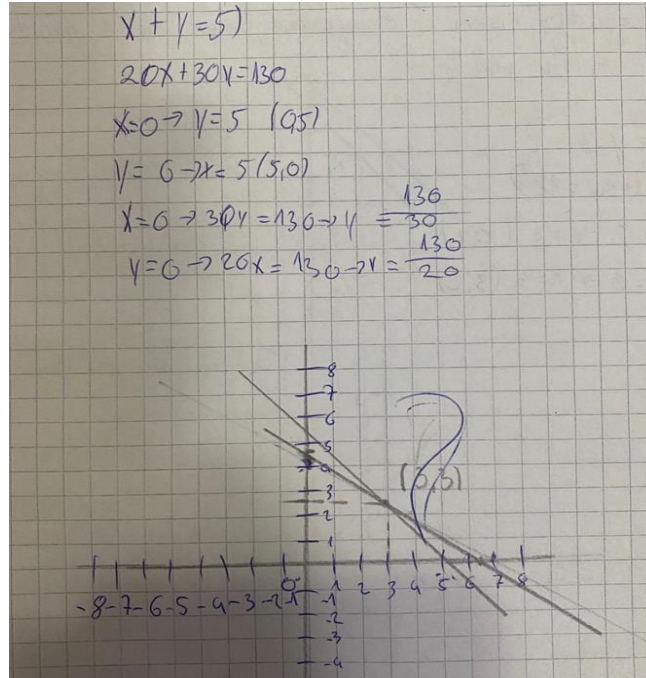 x + y = 5)
20x + 30y = 130
x=0 → y = 5 (0,5)
y = 0 → x = 5 (5,0)
x=0 → 30y = 130 → y = 130/30
y=0 → 20x = 130 → x = 130/20
8
7
6
5
4
(3,3)
3
2
1
0
1 2 3 4 5 6 7 8
-8 -7 -6 -5 -4 -3 -2 -1
-1
-2
-3
-4